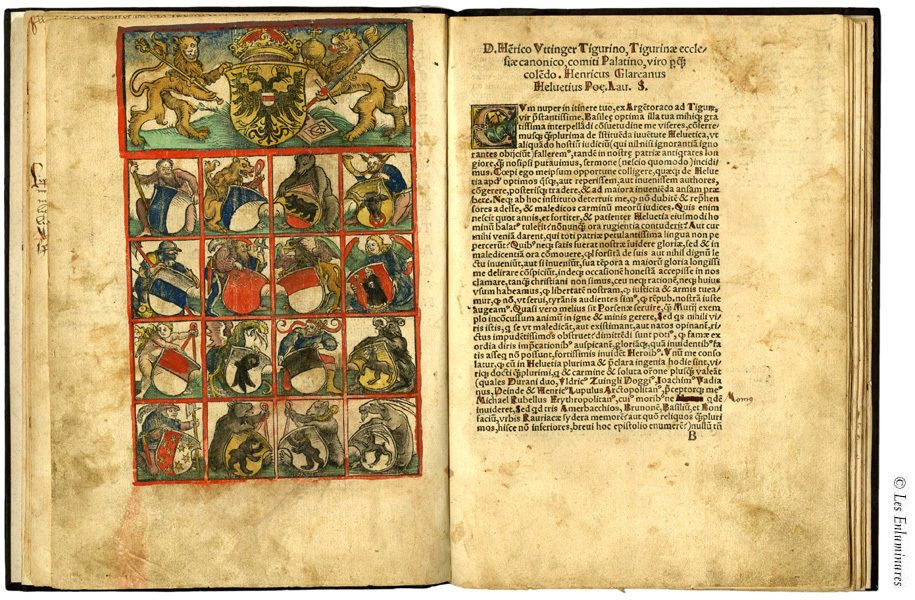 D. Hērico Vtinger Tigurino, Tigurinæ eccle-
siæ canonico, comiti Palatino, viro
colēdo. Henricus Glareanus
Heluetius Poę. Lau. S.
CVm nuper in itinere tuo, ex Argētorato ad Tigurū,
vir p̄stantissime, Basileę optima illa tua mihiq; gra
tissima interpellādi cōsuetudine me viseres, cōferre
musq; plurima de istituēda iuuētute Heluetica, vt
aliquādo hostiū iudiciū (qui nil nisi ignorantiā igno
rantes obijciūt) falleremꝰ, tandē in nostrę patrię antiqtates lon
giore, nosipsi putauimus, sermone (nescio quomodo) incidi
mus. Cœpi ego meipsum opportune colligere, quæcq; de Helue
tia apd' optimos, aut reperissem, aut inuenissem authores,
cōgerere, posterisq; tradere, & ad maiora inueniēda ansam præ
bere. Neq; ab hoc instituto deterruit me, nō dubitē & reprehen
sores adesse, & maledicos carminū meorū iudices. Quis enim
nescit quot annis, et fortiter, & patienter Heluetia eiusmodi ho
minū balatꝰ tulerit? nōnunq ora rugientia contuderit? Aut cur
mihi veniā darent, qui toti patriæ petulantissima lingua non pe
percerūt? Quibꝰ neq; satis fuerat nostræ īuidere gloriæ, sed & in
maledicentia ora cōmouere, forsitā de suis aut nihil dignū le
ctu inueniūt, aut si inueniūt, sua tēpora a maiorū gloria longissi
me delirare cōspiciūt, indeq; occasionē honestā accepisse in nos
clamare, tanq christiani non simus, ceu neq; rationē, neq; huius
vsum habeamus, libertatē nostram, iustitia & armis tuea-
mur, nō, vt serui, tyrānis audientes simꝰ, rēpub. nostrā iuste
augeam. Quasi vero melius sit Porsenæ seruire, Mutij exem
plo incōcussum animū in igne & minis gerere. Sed qs nihili vi
ris istis, se vt maledicāt, aut existimant, aut natos opinant, ri-
ctus impudētissimos obstruet? dimittēdi sunt poti, famæ ex
ordia diris impcationibꝰ auspicant, gloriāq;, quā inuidentibꝰ fa
tis asseq nō possunt, fortissimis inuidēt Heroibꝰ. Vnū me conso
latur, cū in Heluetia plurima & pclara ingenia hodie sint, vi-
riq; docti plurimi, & carmine & soluta orōne plusq; valeāt
(quales Durani duo, Vldricꝰ Zuingli Doggiꝰ, Ioachimꝰ Vadia
nus, Deinde & Henricꝰ Lupulus Arctopolitanꝰ, pceptorq; meꝰ
Michael Rubellus Erythropolitanꝰ, cuiꝰ moribꝰ ne qdē
inuideret, Sed qd tris Amerbacchios, Brunonē, Basiliū, et Boni
faciū, vrbis Rauriacæ sydera memorē? aut quō reliquos plu
mos, hisce nō inferiores, breui hoc epistolio enumerē?) nullū tn̄
B
Momꝰ
© Les Enluminures